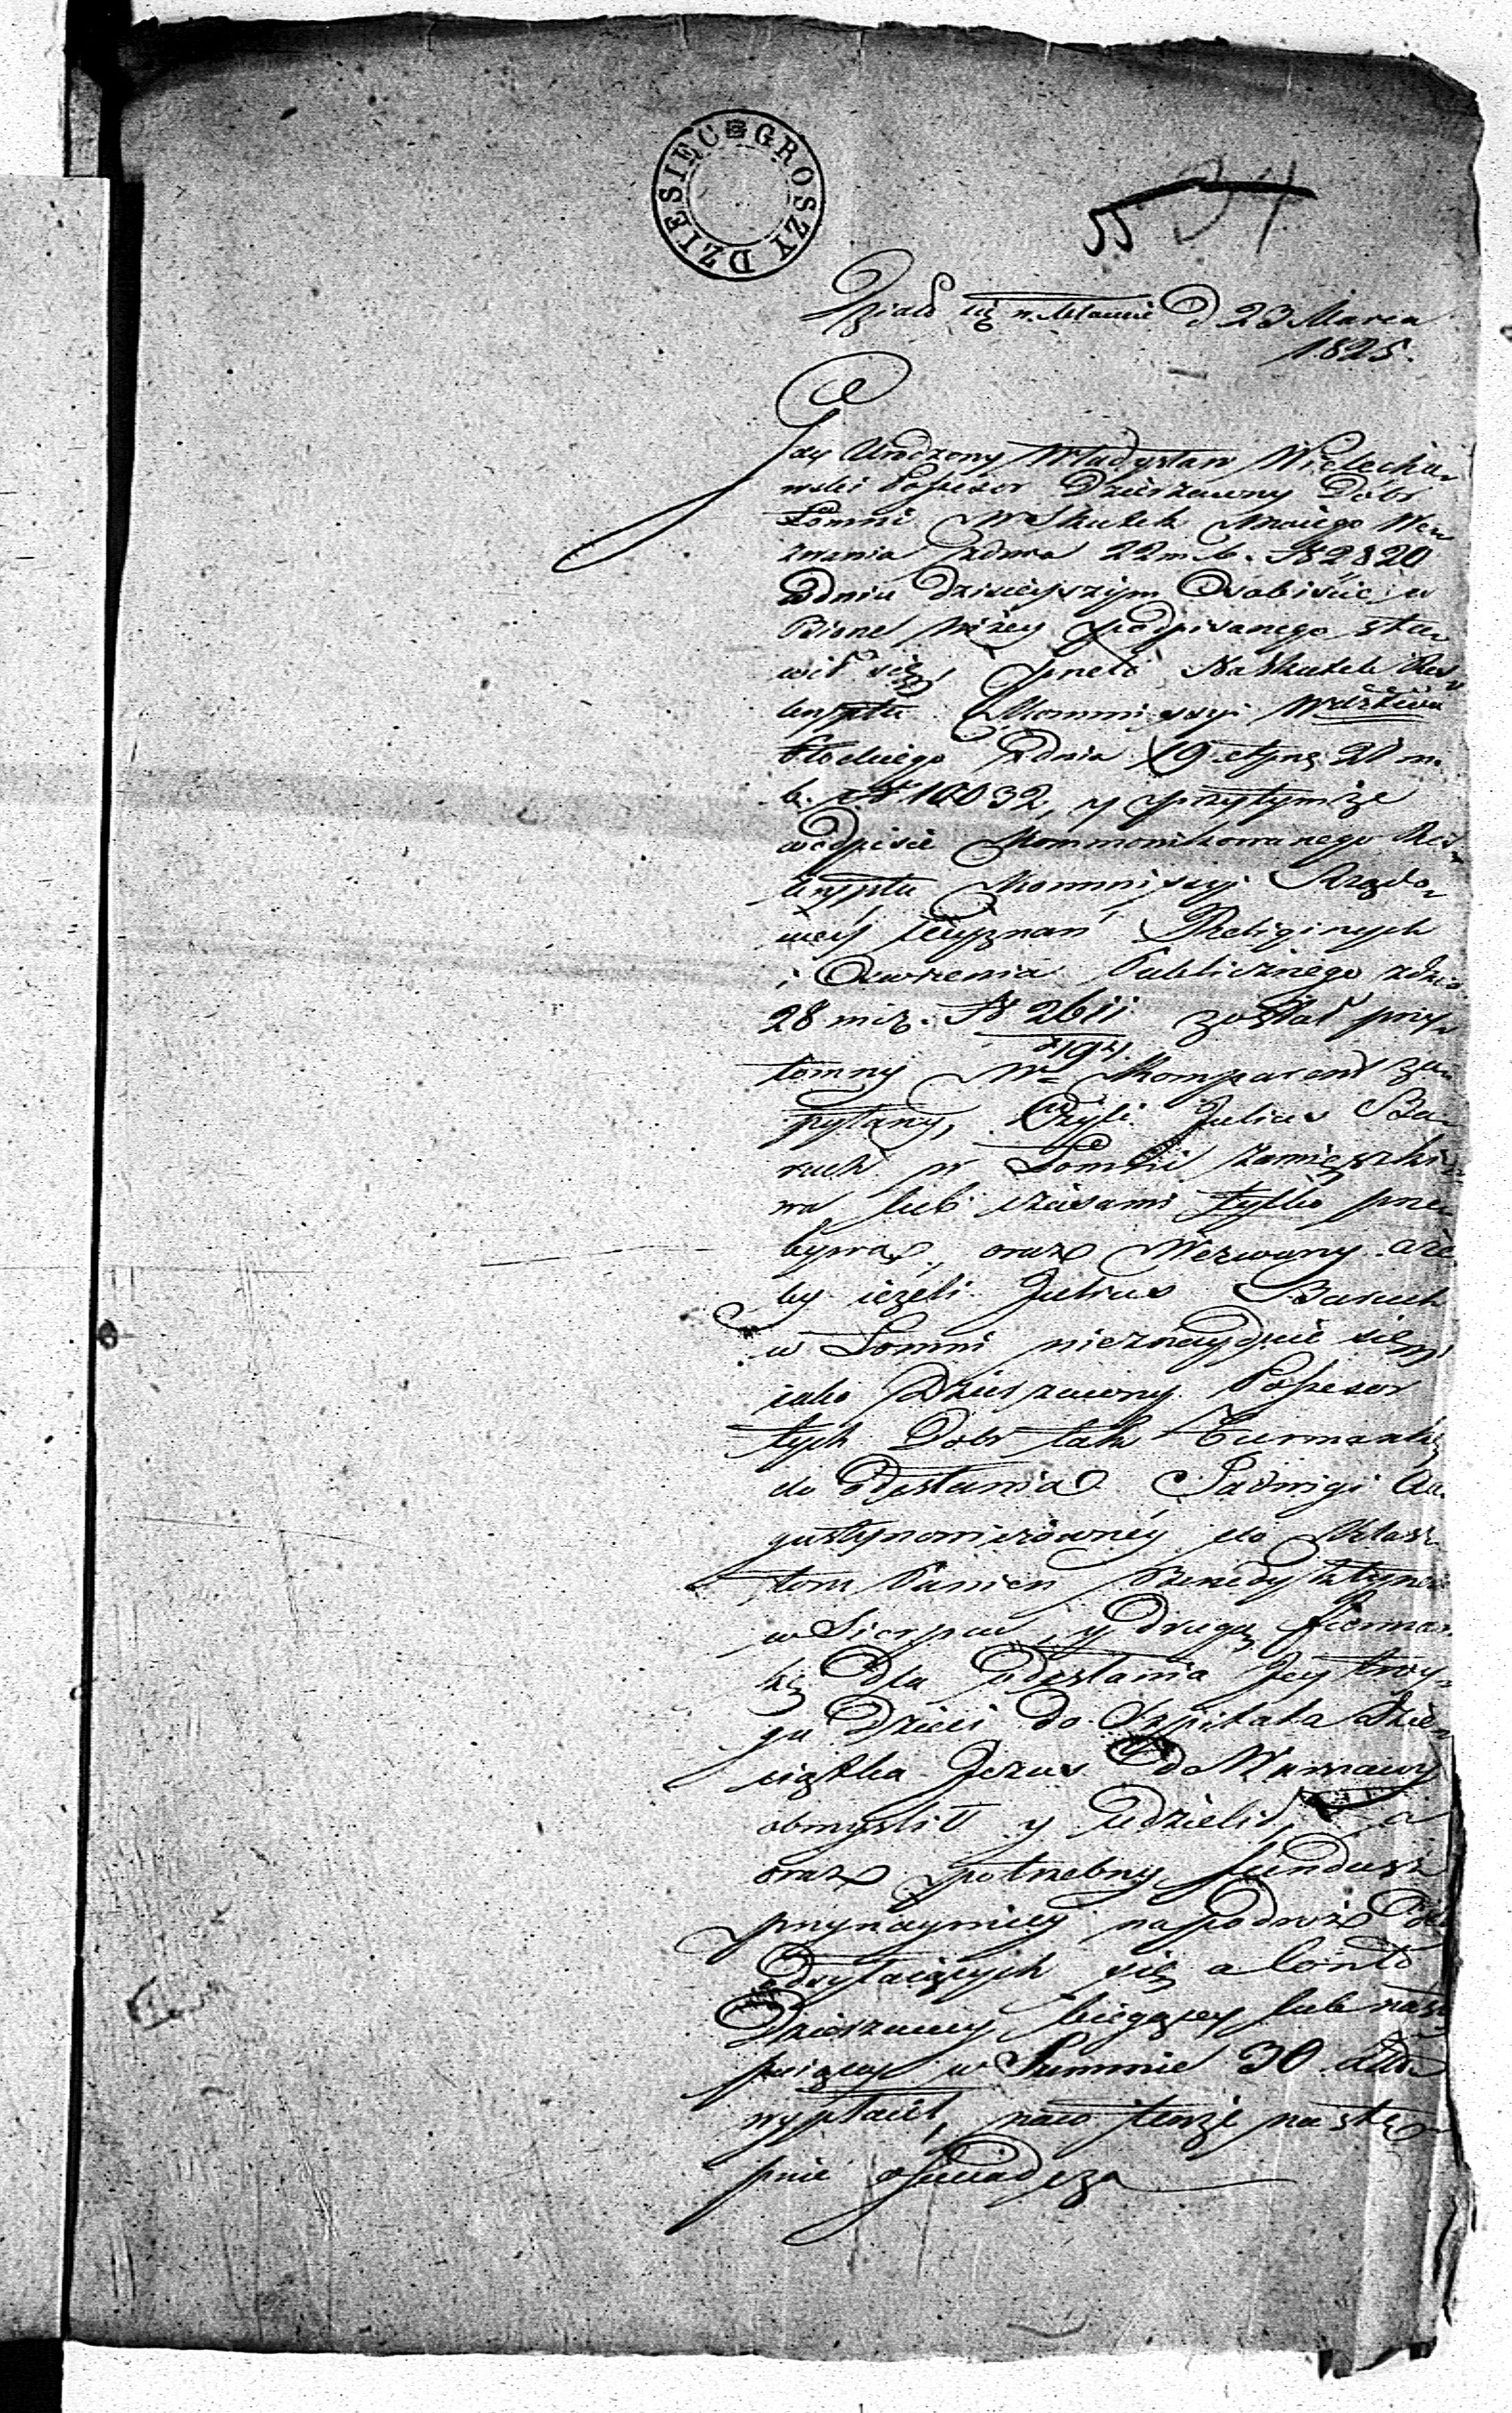 DZIESIĘC GROSZY
55 34
Działo się w Mławie d 23 Marca
1825.
Gdy Urodzony Władysław Wielecho-
wski Possesor Dzierzawny Dobr
Łomni W Skutek Moiego We-
zwania zdnia 22 m. b. N 2820
w dniu dzisieyszym Osobiscie w
Biorze niżey podpisanego sta-
wił się, przeto Na Skutek Res-
kryptu Kommissyi Wdztwa
Płockiego zdnia 19 21 m.
b. N 10032, y przytymże
w odpisie Kommonikowanego Res-
kryptu Kommissyi Rządo-
wey Wyznań Religinych
i Oswiecenia Publicznego zdnia
28 N 2611 został przy-
4194.
tomny W Komparent za-
pytany, Czyli Julius Ba-
ruch w Łomni zamieszki-
wa lub czasami tylko prze-
bywa, oraz Wezwany aże-
by ieżeli Julius Baruch
w Łomni nieznayduie się
iako Dzierzawny Possesor
tych Dobr tak Furmankę
do Odesłania Jadwigi Au-
gustynowiczowney do Klasz-
toru Panien Benedyktynek
w Sierpcu, y drugą Furman-
kę Dla Odesłania Jey troy-
ga Dzieci do Szpitala Dzie-
ciątka Jezus do Warszawy
obmyslił y Udzielił, a
oraz potrzebny fundusz
przynaymniey na podroż Dla
Odsyłaiących się a Conto
Dzierzawy bieżącey lub nastę-
puiącey w Summie 30
wypłacił, naco tenże nastę-
pnie oświadcza